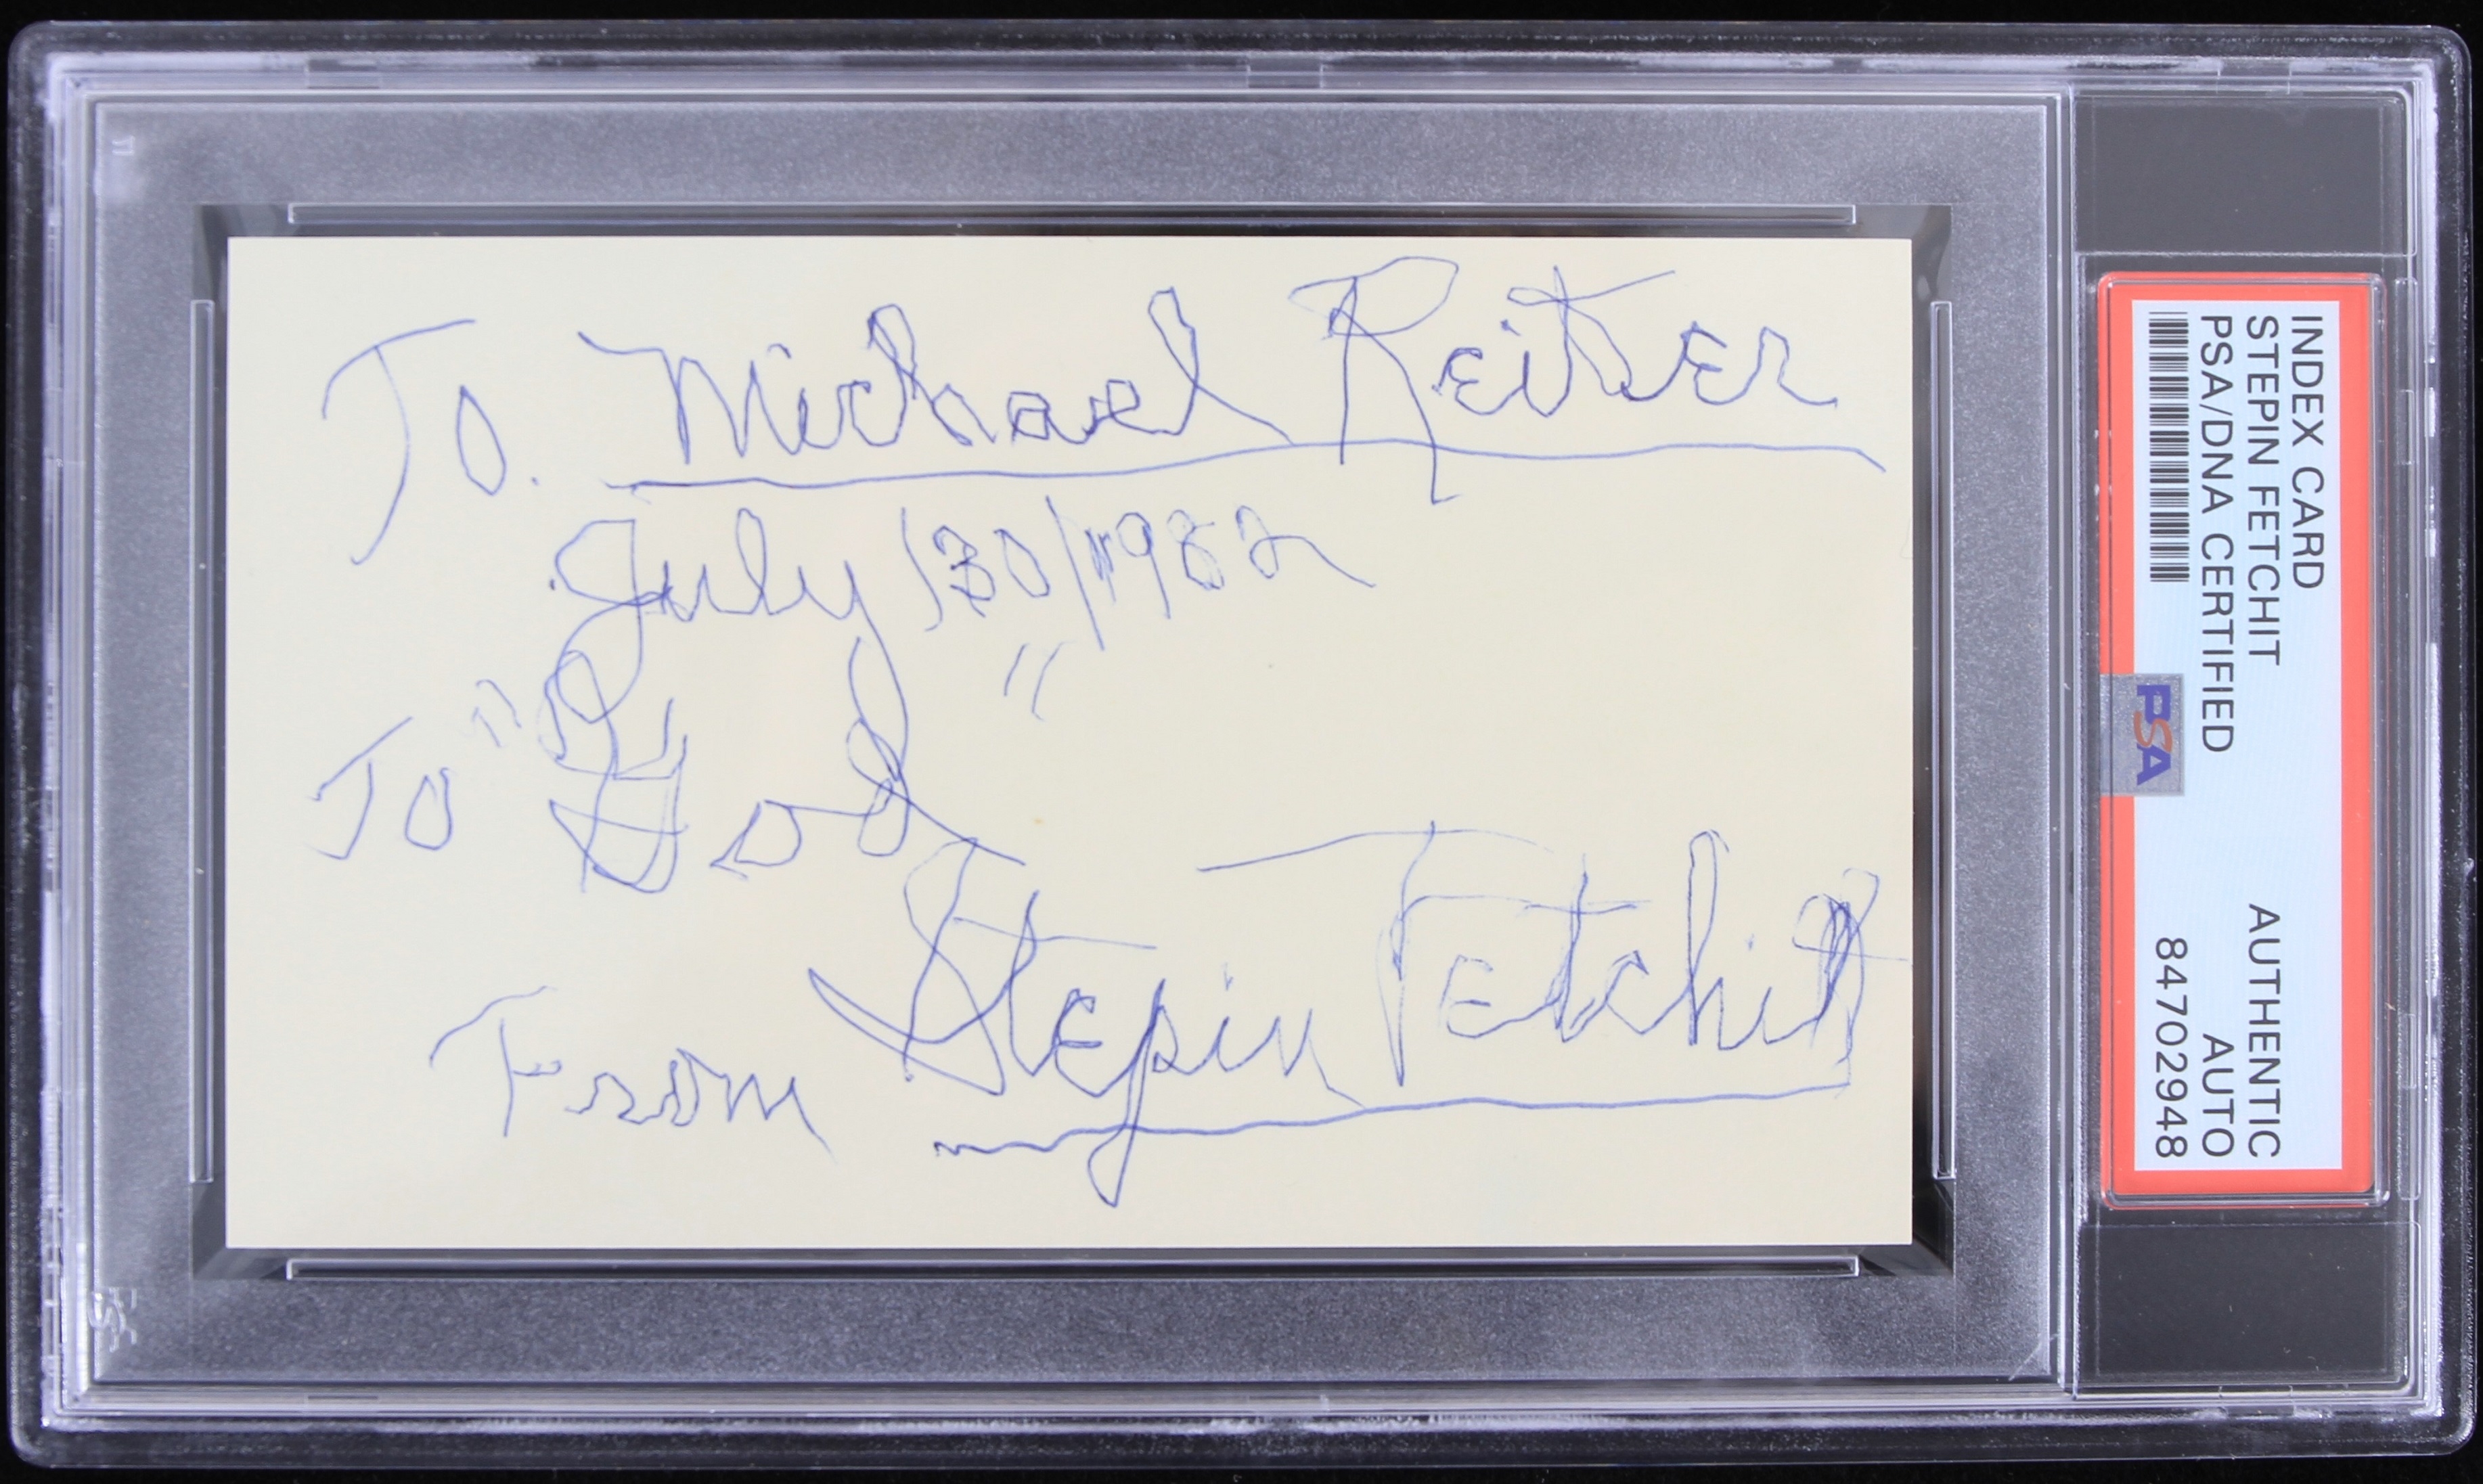 To. Michael Reitzer
July /30/1982
To "God"
From Stepin Fetchit
INDEX CARD
STEPIN FETCHIT
PSA/DNA CERTIFIED
AUTHENTIC
AUTO
84702948
PSA